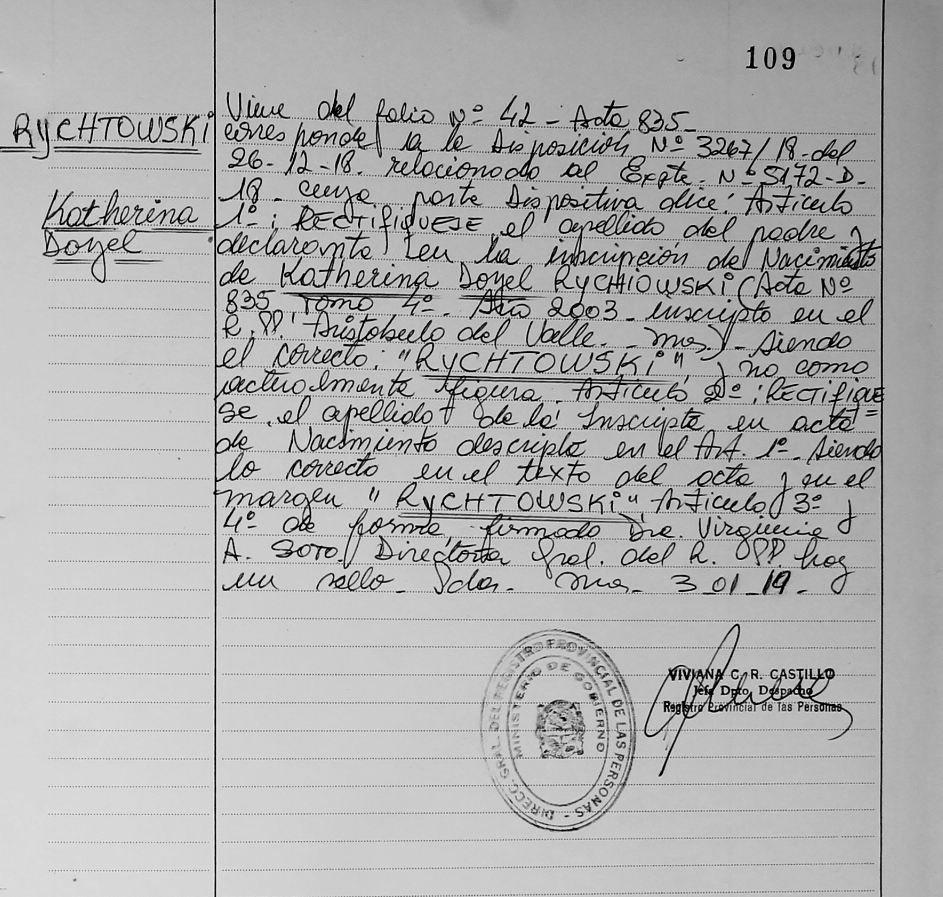 109
RYCHTOWSKI
Katherina
Doyel
Viene del folio Nº 42 - Acta 835-
corresponde a la Disposición Nº 3267/18-del
26-12-18. relacionado al Expte. Nº 5172-D-
18- cuya parte Dispositiva dice: Artículo
1º: RECTIFIQUESE, el apellido del padre y
declarante en la inscripción de Nacimiento
de Katherina Doyel RYCHIOWSKI (Acta Nº
835 Tomo 4º- Año 2003- inscripto en el
R. PP. Aristobulo del Valle. - Mnes) - Siendo
el correcto: "RYCHTOWSKI", y no como
actualmente figura. Artículo 2º: RECTIFIQUE
se, el apellido de la Inscripta en acta
de Nacimiento descripta en el Art. 1º- Siendo
lo correcto en el texto del acta y en el
margen "RYCHTOWSKI", Artículo 3º y
4º de forma firmado Dra. Virginia
A. SOTO Directora Gral. del R. PPP. hay
un sello- Pdas. Mnes- 3-01-19.-
DIRECC. GRAL. DEL REGISTRO PROVINCIAL DE LAS PERSONAS -
MINISTERIO DE GOBIERNO
VIVIANA C. R. CASTILLO
Jefa Dpto. Despacho
Registro Provincial de las Personas